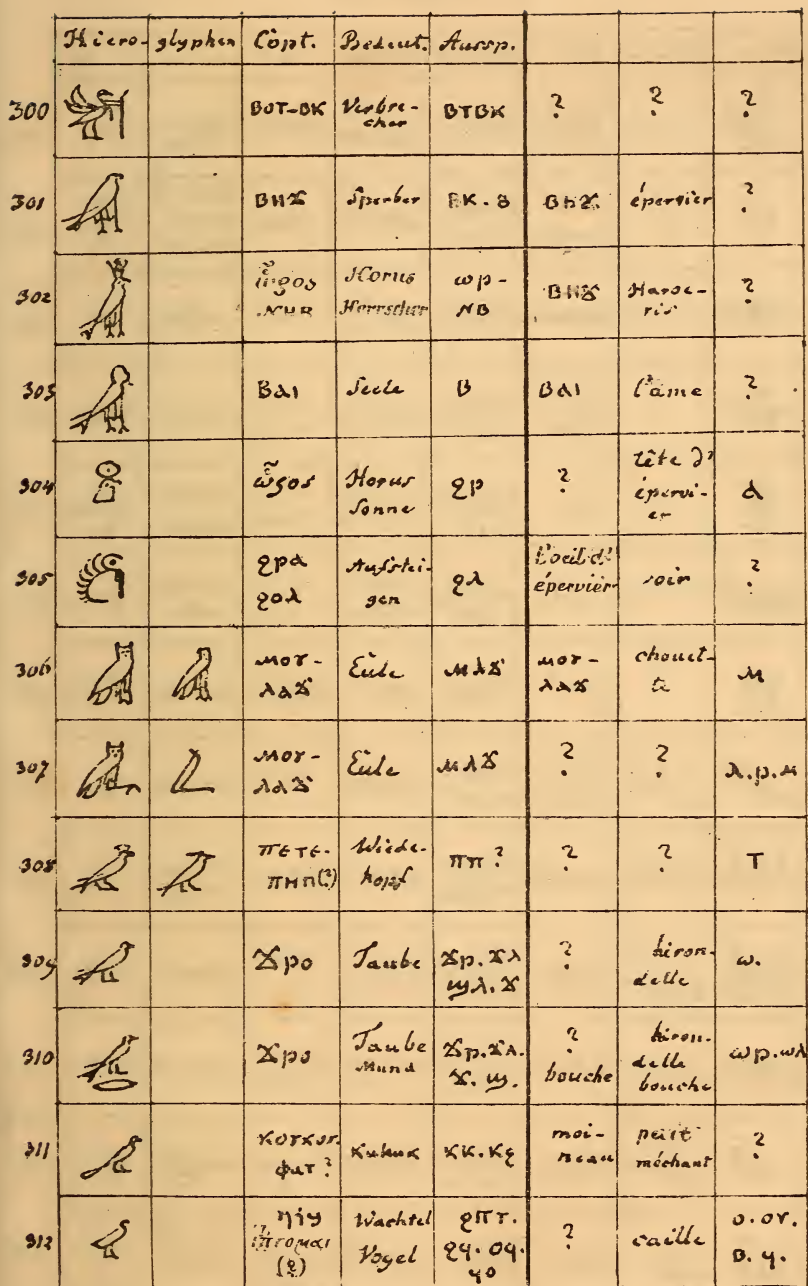 Hiero- glyphen Copt. Bedeut. Aussp.
300 ⲃⲟⲧ-ⲃⲕ Verbre- cher ⲃⲧⲃⲕ ? ? ?
301 ⲃⲏϫ Sperber ⲃⲕ. ⲃⲏϫ épervier ?
302 ⲛⲏⲃ Horus Herrscher ⲱⲣ- ⲛⲃ ⲃⲏϫ Haroe- ris ?
303 ⲃⲁⲓ Seele ⲃ ⲃⲁⲓ l'âme ?
304 Horus Sonne ϩⲣ ? tête d' épervi- er ⲁ
305 ϩⲣⲁ ϩⲟⲗ Aufstei- gen ϩⲗ L'oeil d' épervier voir ?
306 ⲙⲟⲩ- ⲗⲁϫ Eule ⲙⲗϫ ⲙⲟⲩ- ⲗⲁϫ chouet- te ⲙ
307 ⲙⲟⲩ- ⲗⲁϫ Eule ⲙⲗϫ ? ? ⲗ.ⲣ.ⲙ
308 ⲡⲉⲧⲉ- ⲡⲏⲡ(?) Wiede- hopf ⲡⲡ ? ? ? ⲧ
309 ϫⲣⲟ Taube ϫⲣ. ϫⲗ ϣⲗ. ϫ ? hiron- delle ⲱ.
310 ϫⲣⲟ Taube Mund ϫⲣ. ϫⲗ. ϫ. ϣ. ? bouche hiron- delle bouche ⲱⲣ. ⲱⲗ
311 ⲕⲟⲩⲕⲟⲩ- ⲫⲁⲧ ? Kukuk ⲕⲕ. ⲕϩ moi- neau petit méchant ?
312 Wachtel Vogel ϩⲡⲧ. ϩϥ. ⲟϥ. ϥⲟ ? caille ⲟ. ⲟⲩ. ⲃ. ϥ.